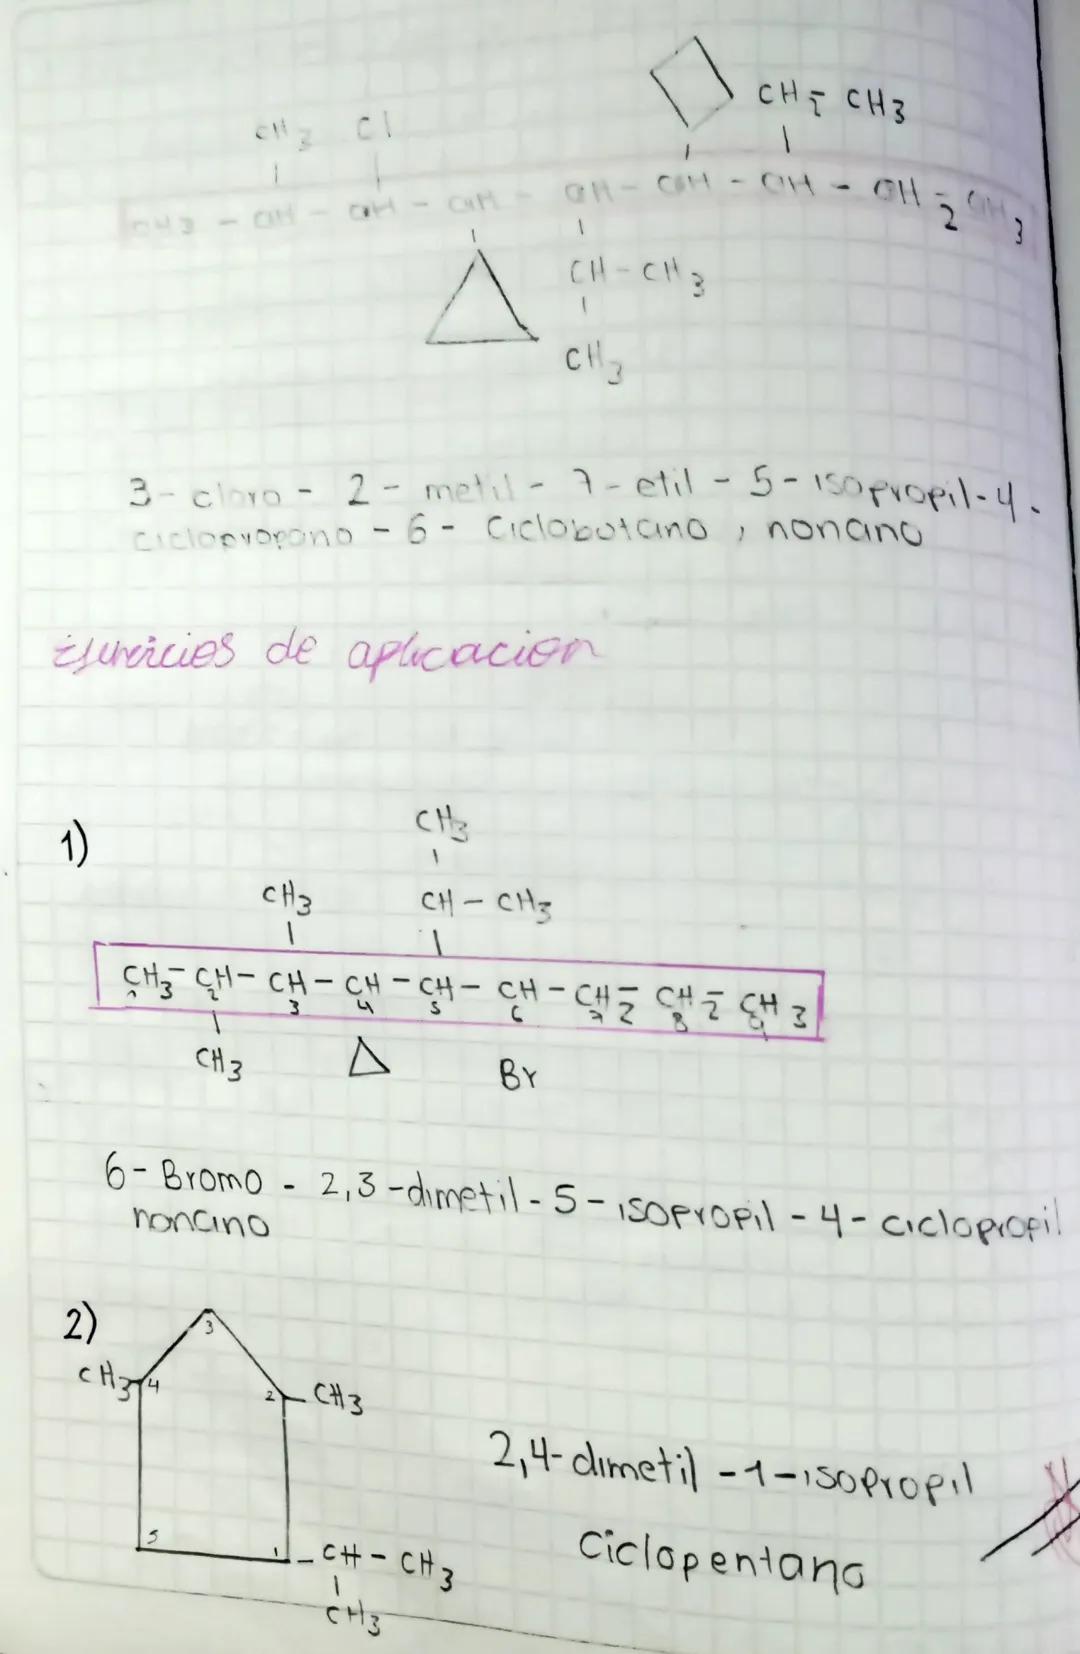 CH2 - CH3
CH3 Cl
CH3 - CH - CH - CH - CH - CH - CH - CH2 - CH3
CH - CH3
CH3
3 - cloro - 2 - metil - 7 - etil - 5 - isopropil - 4 -
ciclopropano - 6 - Ciclobutano , nonano
Ejercicios de aplicacion
1)
CH3
CH3 CH - CH3
CH3 - CH - CH - CH - CH - CH - CH2 - CH2 - CH3
1 2 3 4 5 6 7 8 9
CH3 Br
6 - Bromo - 2,3 - dimetil - 5 - isopropil - 4 - ciclopropil
nonano
2)
3
CH3 4 2 CH3
2,4 - dimetil - 1 - isopropil
Ciclopentano
5 1 CH - CH3
CH3